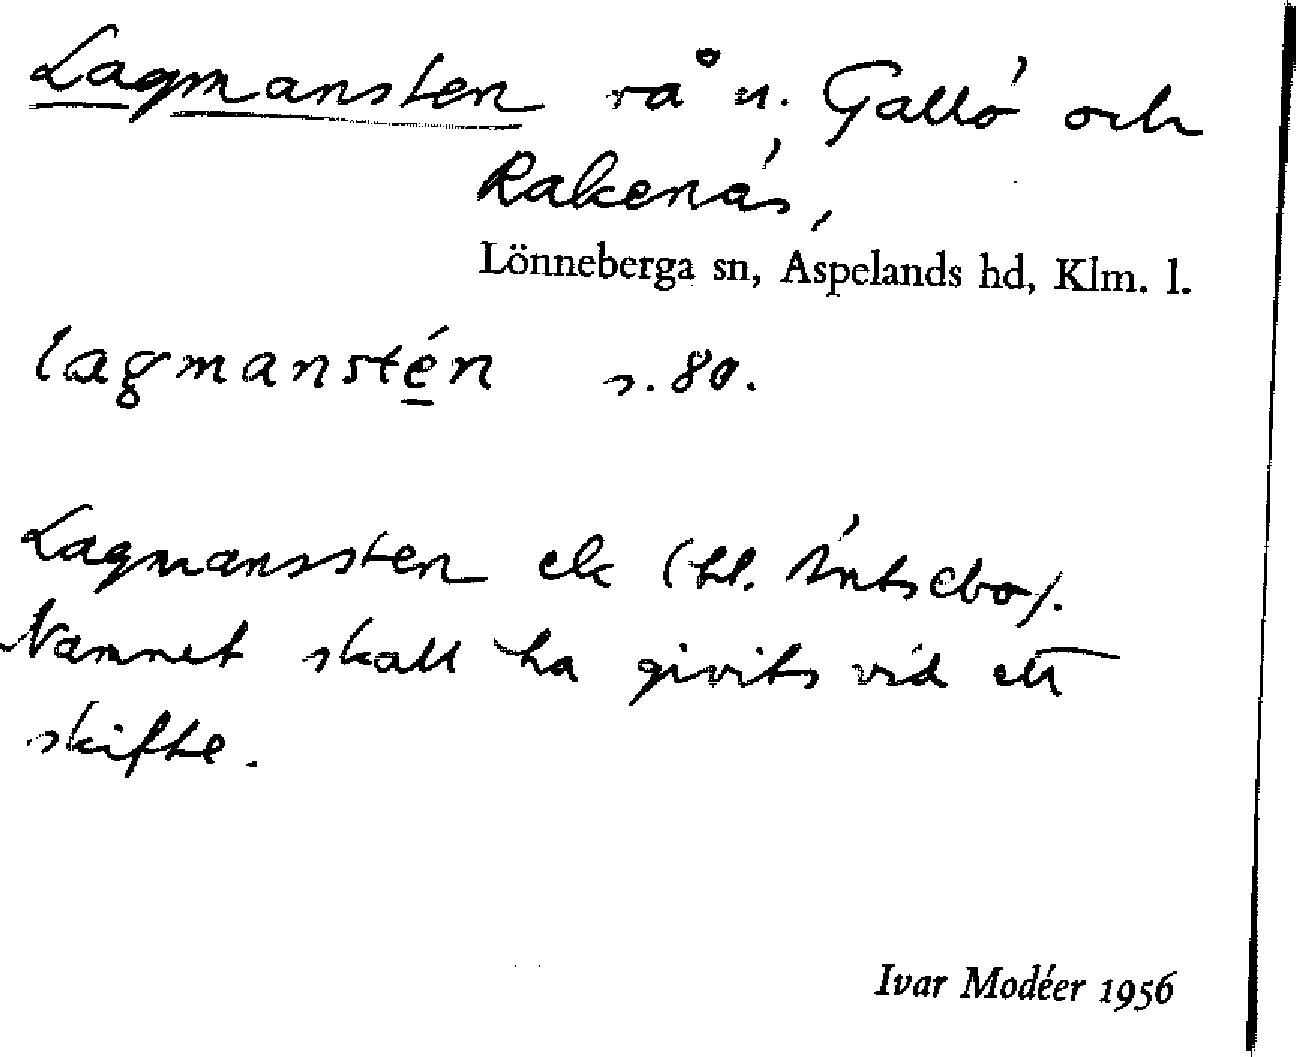 Lagmansten rå n. Gallö och
Rakenäs,
Lönneberga sn, Aspelands hd, Klm. l.
lagmanstén s. 80.
Lagmanssten ek (bl.
Namnet skall ha givits vid ett
skifte.
Ivar Modéer 1956